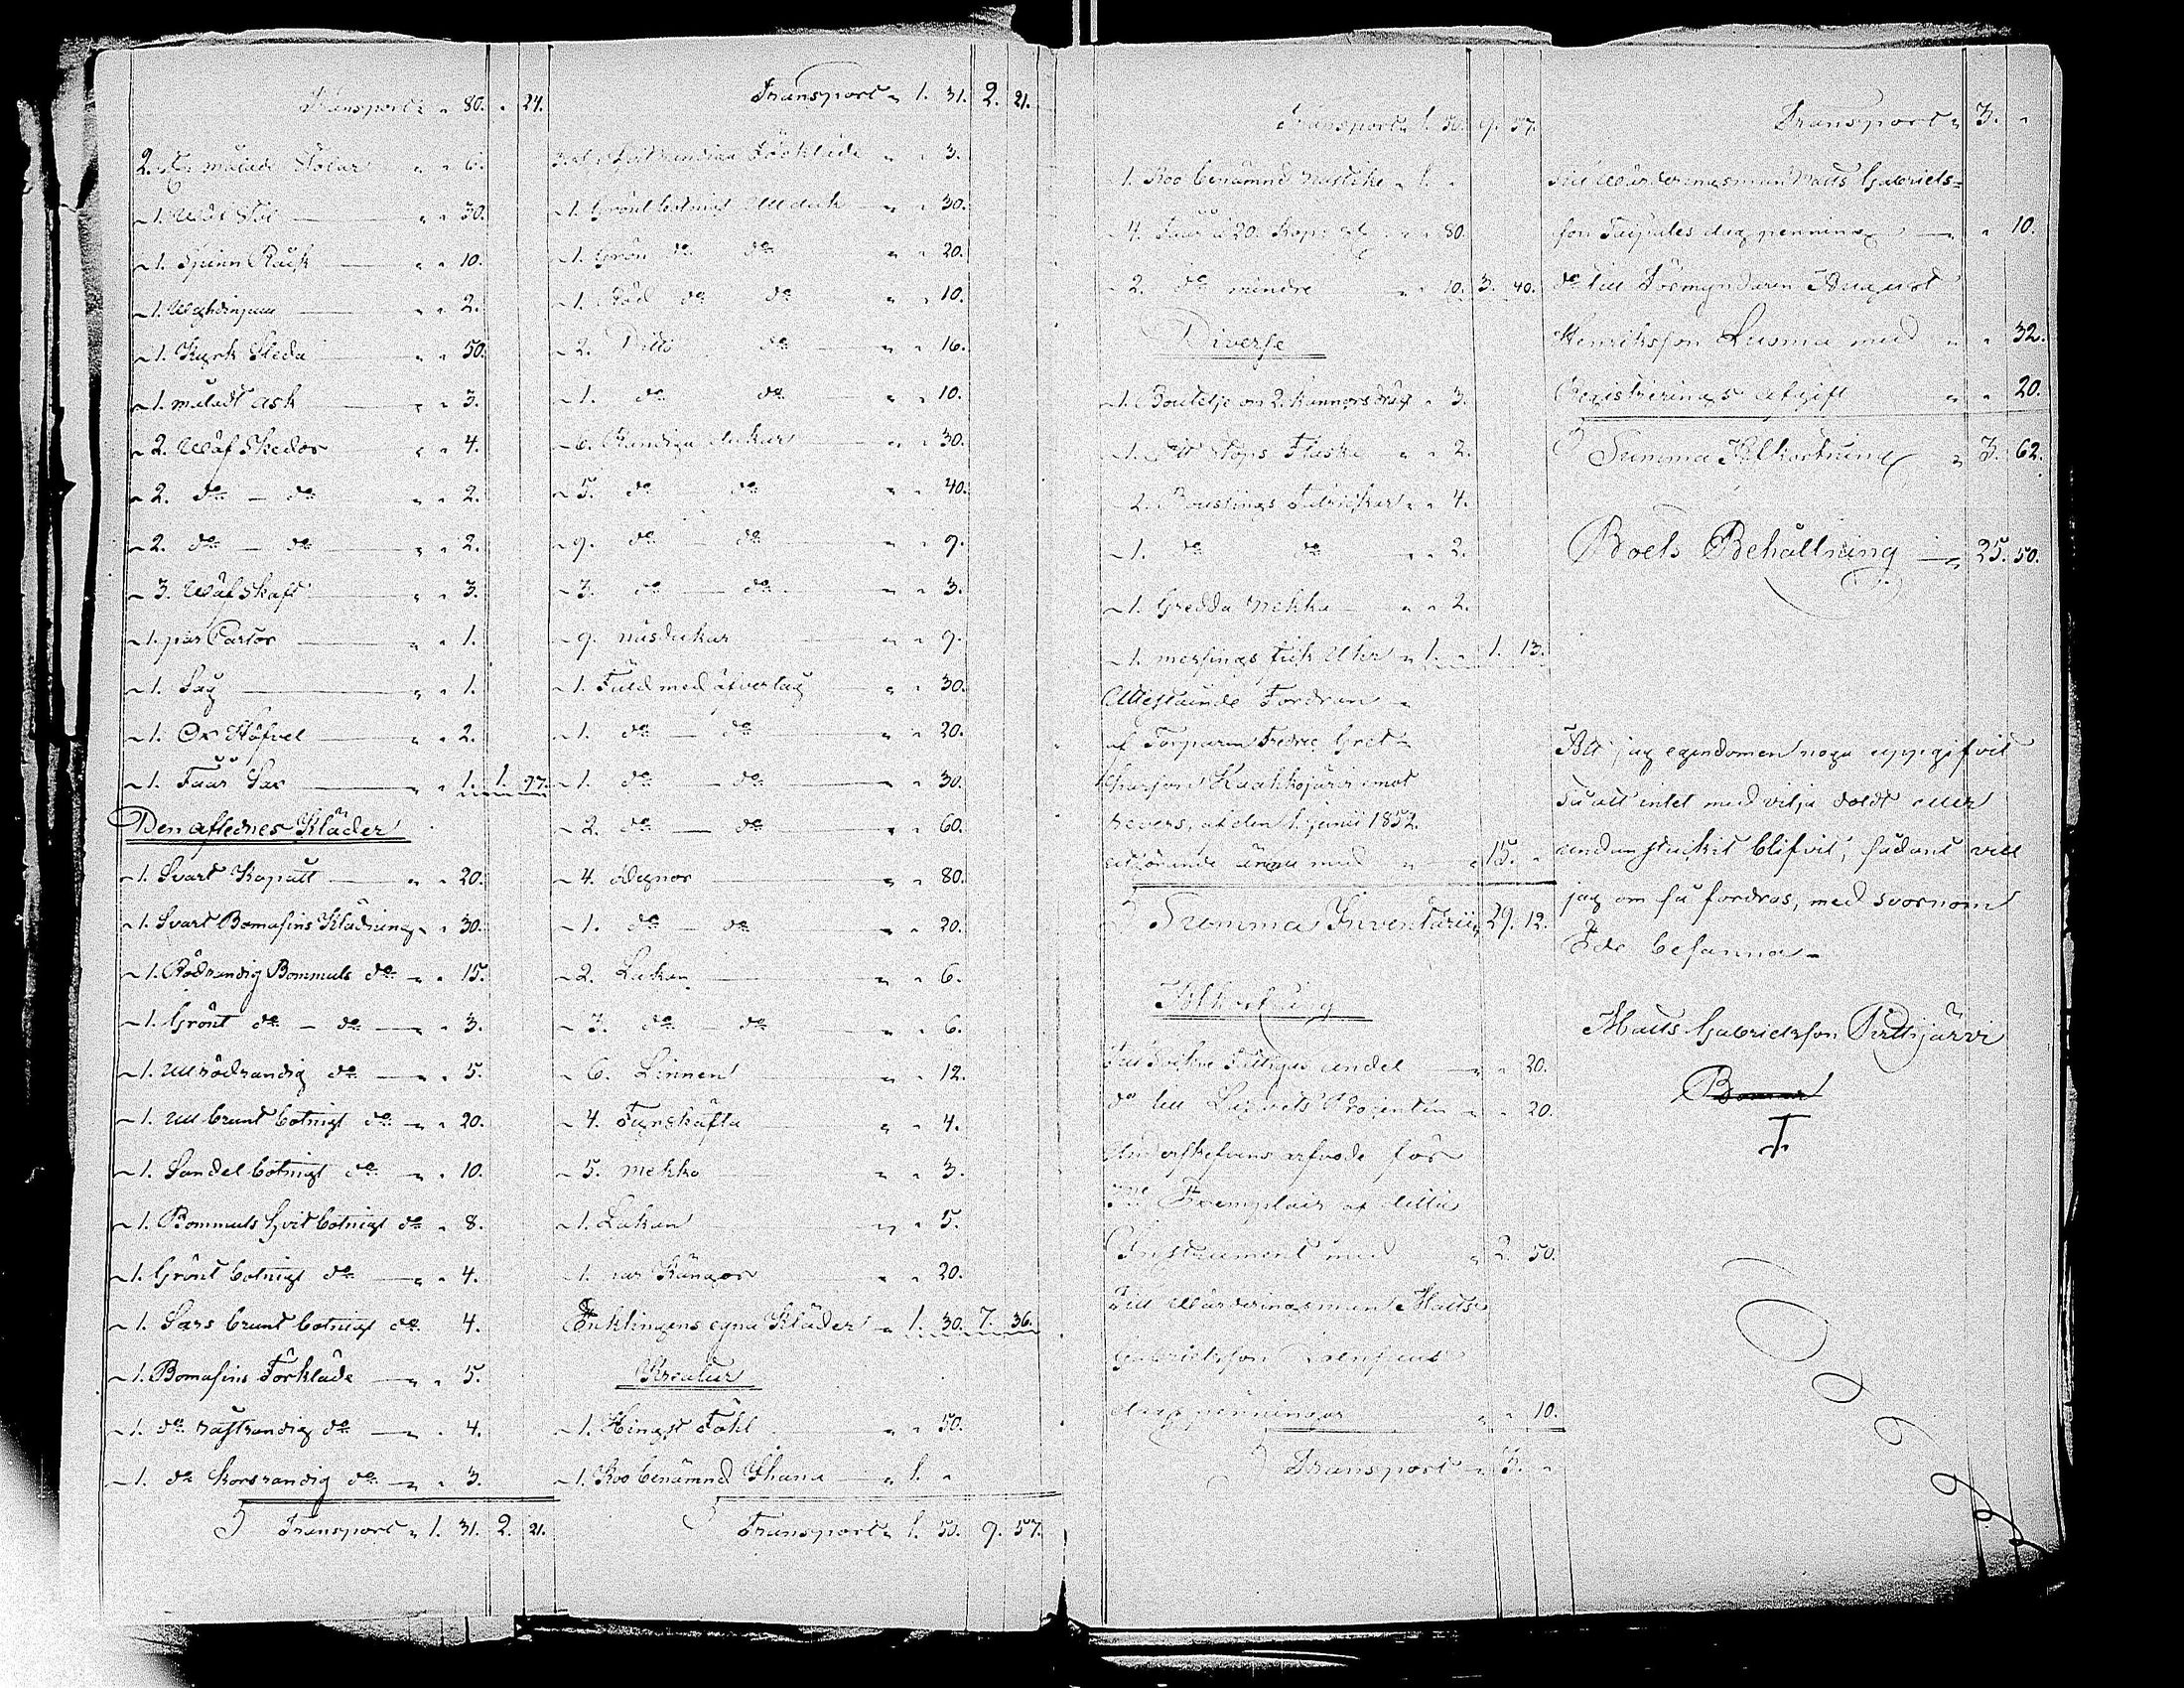 Transport " 80. " 24.
2. st målade Stolar " " 6.
1. Stol " " 30.
1. Spinn Råck " " 10.
1. " " 2.
1. Kyrk Sleda " " 50.
1. måladt ask " " 3.
2. Wäf Skedor " " 4.
2. do — do " " 2.
2. do — do " " 2.
3. Wäf Skaft " " 3.
1. par Cartor " " 1.
1. Såg " " 1.
1. Ox Häfvel " " 2.
1. Fåår Sax " " 1. 1. 97.
Den aflednes Kläder
1. Svart Kapatt " " 20.
1. Svart Bomasins Klädning " " 30.
1. Rödrandig Bommuls do " " 15.
1. Grönt do — do " " 3.
1. Ull rödrandig do " " 5.
1. Ull brunt botnigt do " " 20.
1. Sandel botnigt do " " 10.
1. Bommuls hvit botnigt do " 8.
1. Grönt botnigt do " " 4.
1. Sars brunt botnigt do 4.
1. Bomasins Förkläde " " 5.
1. do do " " 4.
1. do korsrandig do " " 3.
Transport " 1. 31. 2. 21.
Transport " 1. 31. 2. 21.
Förkläde " " 3.
1. Grönt botnigt Ull duk " " 30.
1. Grön do do " " 20.
1. Röd do do " " 10.
2. Ditto do " " 16.
1. do do " " 10.
6. Randiga dukar " " 30.
5. do do " " 40.
9. do — do " " 9.
3. do — do " " 3.
9. näsdukar " " 9.
1. Fäld med äfvertag " " 30.
1. do — do " " 20.
1. do — do " " 30.
2. do — do " " 60.
4. Dynor " " 80.
1. do — do " " 20.
2. Lakan " " 6.
3. do — do " " 6.
6. Linnen " " 12.
4. " " 4.
5. mekko " " 3.
1. Lakan " " 5.
1. par Kängor " " 20.
Enklingens egna Kläder " 1. 30. 7. 36.
Kreatur
1. Hingst Fåhl " " 50.
1. Koo benämnd " 1. "
Transport " 1. 50. 9. 57.
Transport " 1. 50. 9. 57.
1. Koo benämnd " 1. "
4. Fåår a 20. Kop: st " " 80.
2. do mindre " " 10. 3. 40.
Diverse
1. Boutelje om 2. kannors dräg " 3.
1. Ett Stops Flaska " " 2.
2. " " 4.
1. do do " " 2.
1. Gredda mekko " " 2.
1. messings fick Uhr " 1. " 1. 13.
Utestående Fordran
af Torparen Fredric
Kaakkojärvi emot
revers, af den 1 junii 1852.
utgörande ännu med " 15. "
Summa Inventarii 29. 12.
Afkortning
Till Fattigas andel " " 20.
do till Procenten " " 20.
Underskrefvens arfvode för
Exemplair af detta
Instrument med " 2. 50.
Till Wärderingsman Matts
Gabrielsson
dagspenningar " " 10.
Transport " 3. "
Transport " 3. "
Till Wärderingsman Matts Gabriels=
son dag penning " " 10.
do till Förmyndaren August
Henriksson med " " 32.
Registrerings afgift " " 20.
Summa Afkortning " 3. 62.
Boets Behållning " 25. 50.
Att jag egendomen noga uppgifvit
så att intet med vilja doldt eller
undanstuckit blifvit, sådant vill
jag om så fordras, med svornom
Ede besanna.
Matts Gabrielsson Pirttijärvi